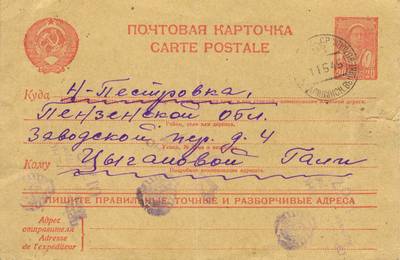 ПОЧТОВАЯ КАРТОЧКА
CARTE POSTALE
Куда Н-Пестровка,
Пензенской Обл.
Заводской пер. д. 4
Кому Цыгановой Гали
ПИШИТЕ ПРАВИЛЬНЫЕ, ТОЧНЫЕ И РАЗБОРЧИВЫЕ АДРЕСА
Адрес
отправителя
Adresse
de l'expéditeur